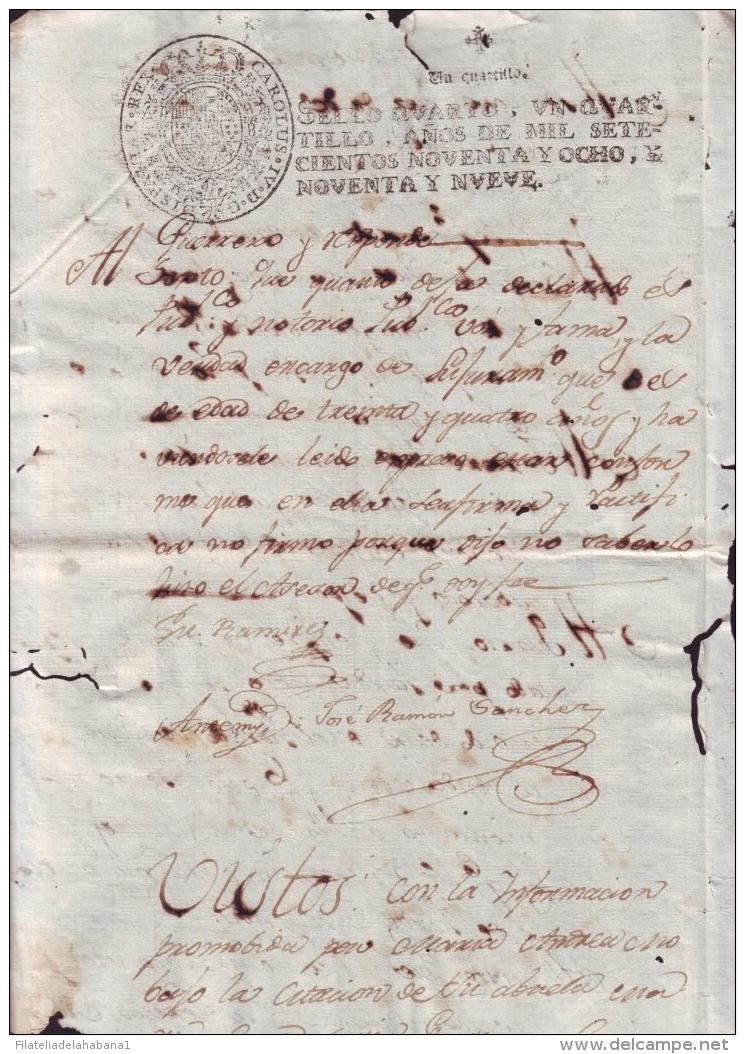 CAROLUS · IV · D · G · HISP · ET · IND · REX
Un quartillo.
SELLO QVARTO, VN QVAR-
TILLO, AÑOS DE MIL SETE-
CIENTOS NOVENTA Y OCHO, Y
NOVENTA Y NVEVE.
Guerrero y responde
Al Sexto: que quanto deja declarado es
Pub.co y notorio Pub.co vos y fama, y la
verdad encargo de su juram.to que es
de edad de treinta y quatro años y ha
viendosele leido expreso estar confor
me que en ella se afirma y ratifi
ca no firmo porque dijo no saber lo
hiso el Asesor de q.e doy fee
Ramires
Antemy: José Ramón Sanchez
Vistos: con la Informacion
promobida por Maria Andrea
bajo la citacion de su abuela
Filateliadelahabana1
delcampe.net